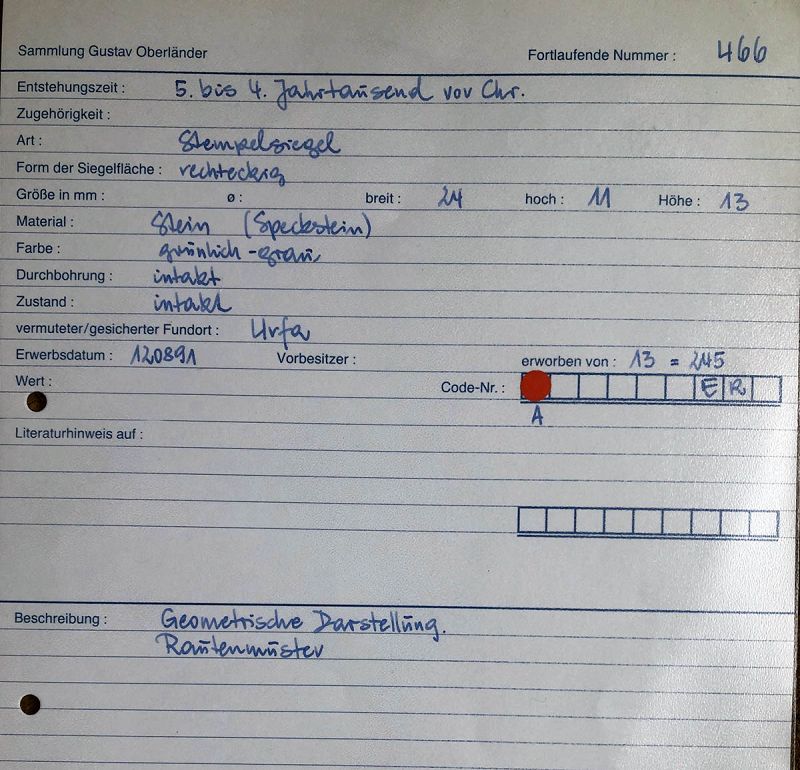 Sammlung Gustav Oberländer Fortlaufende Nummer : 466
Entstehungszeit : 5. bis 4. Jahrtausend vor Chr.
Zugehörigkeit :
Art : Stempelsiegel
Form der Siegelfläche : rechteckig
Größe in mm : ø : breit : 24 hoch : 11 Höhe : 13
Material : Stein (Speckstein)
Farbe : grünlich-grau
Durchbohrung : intakt
Zustand : intakt
vermuteter/gesicherter Fundort : Urfa
Erwerbsdatum : 120891 Vorbesitzer : erworben von : 13 = 245
Wert : Code-Nr. : E R
A
Literaturhinweis auf :
Beschreibung : Geometrische Darstellung.
Rautenmuster